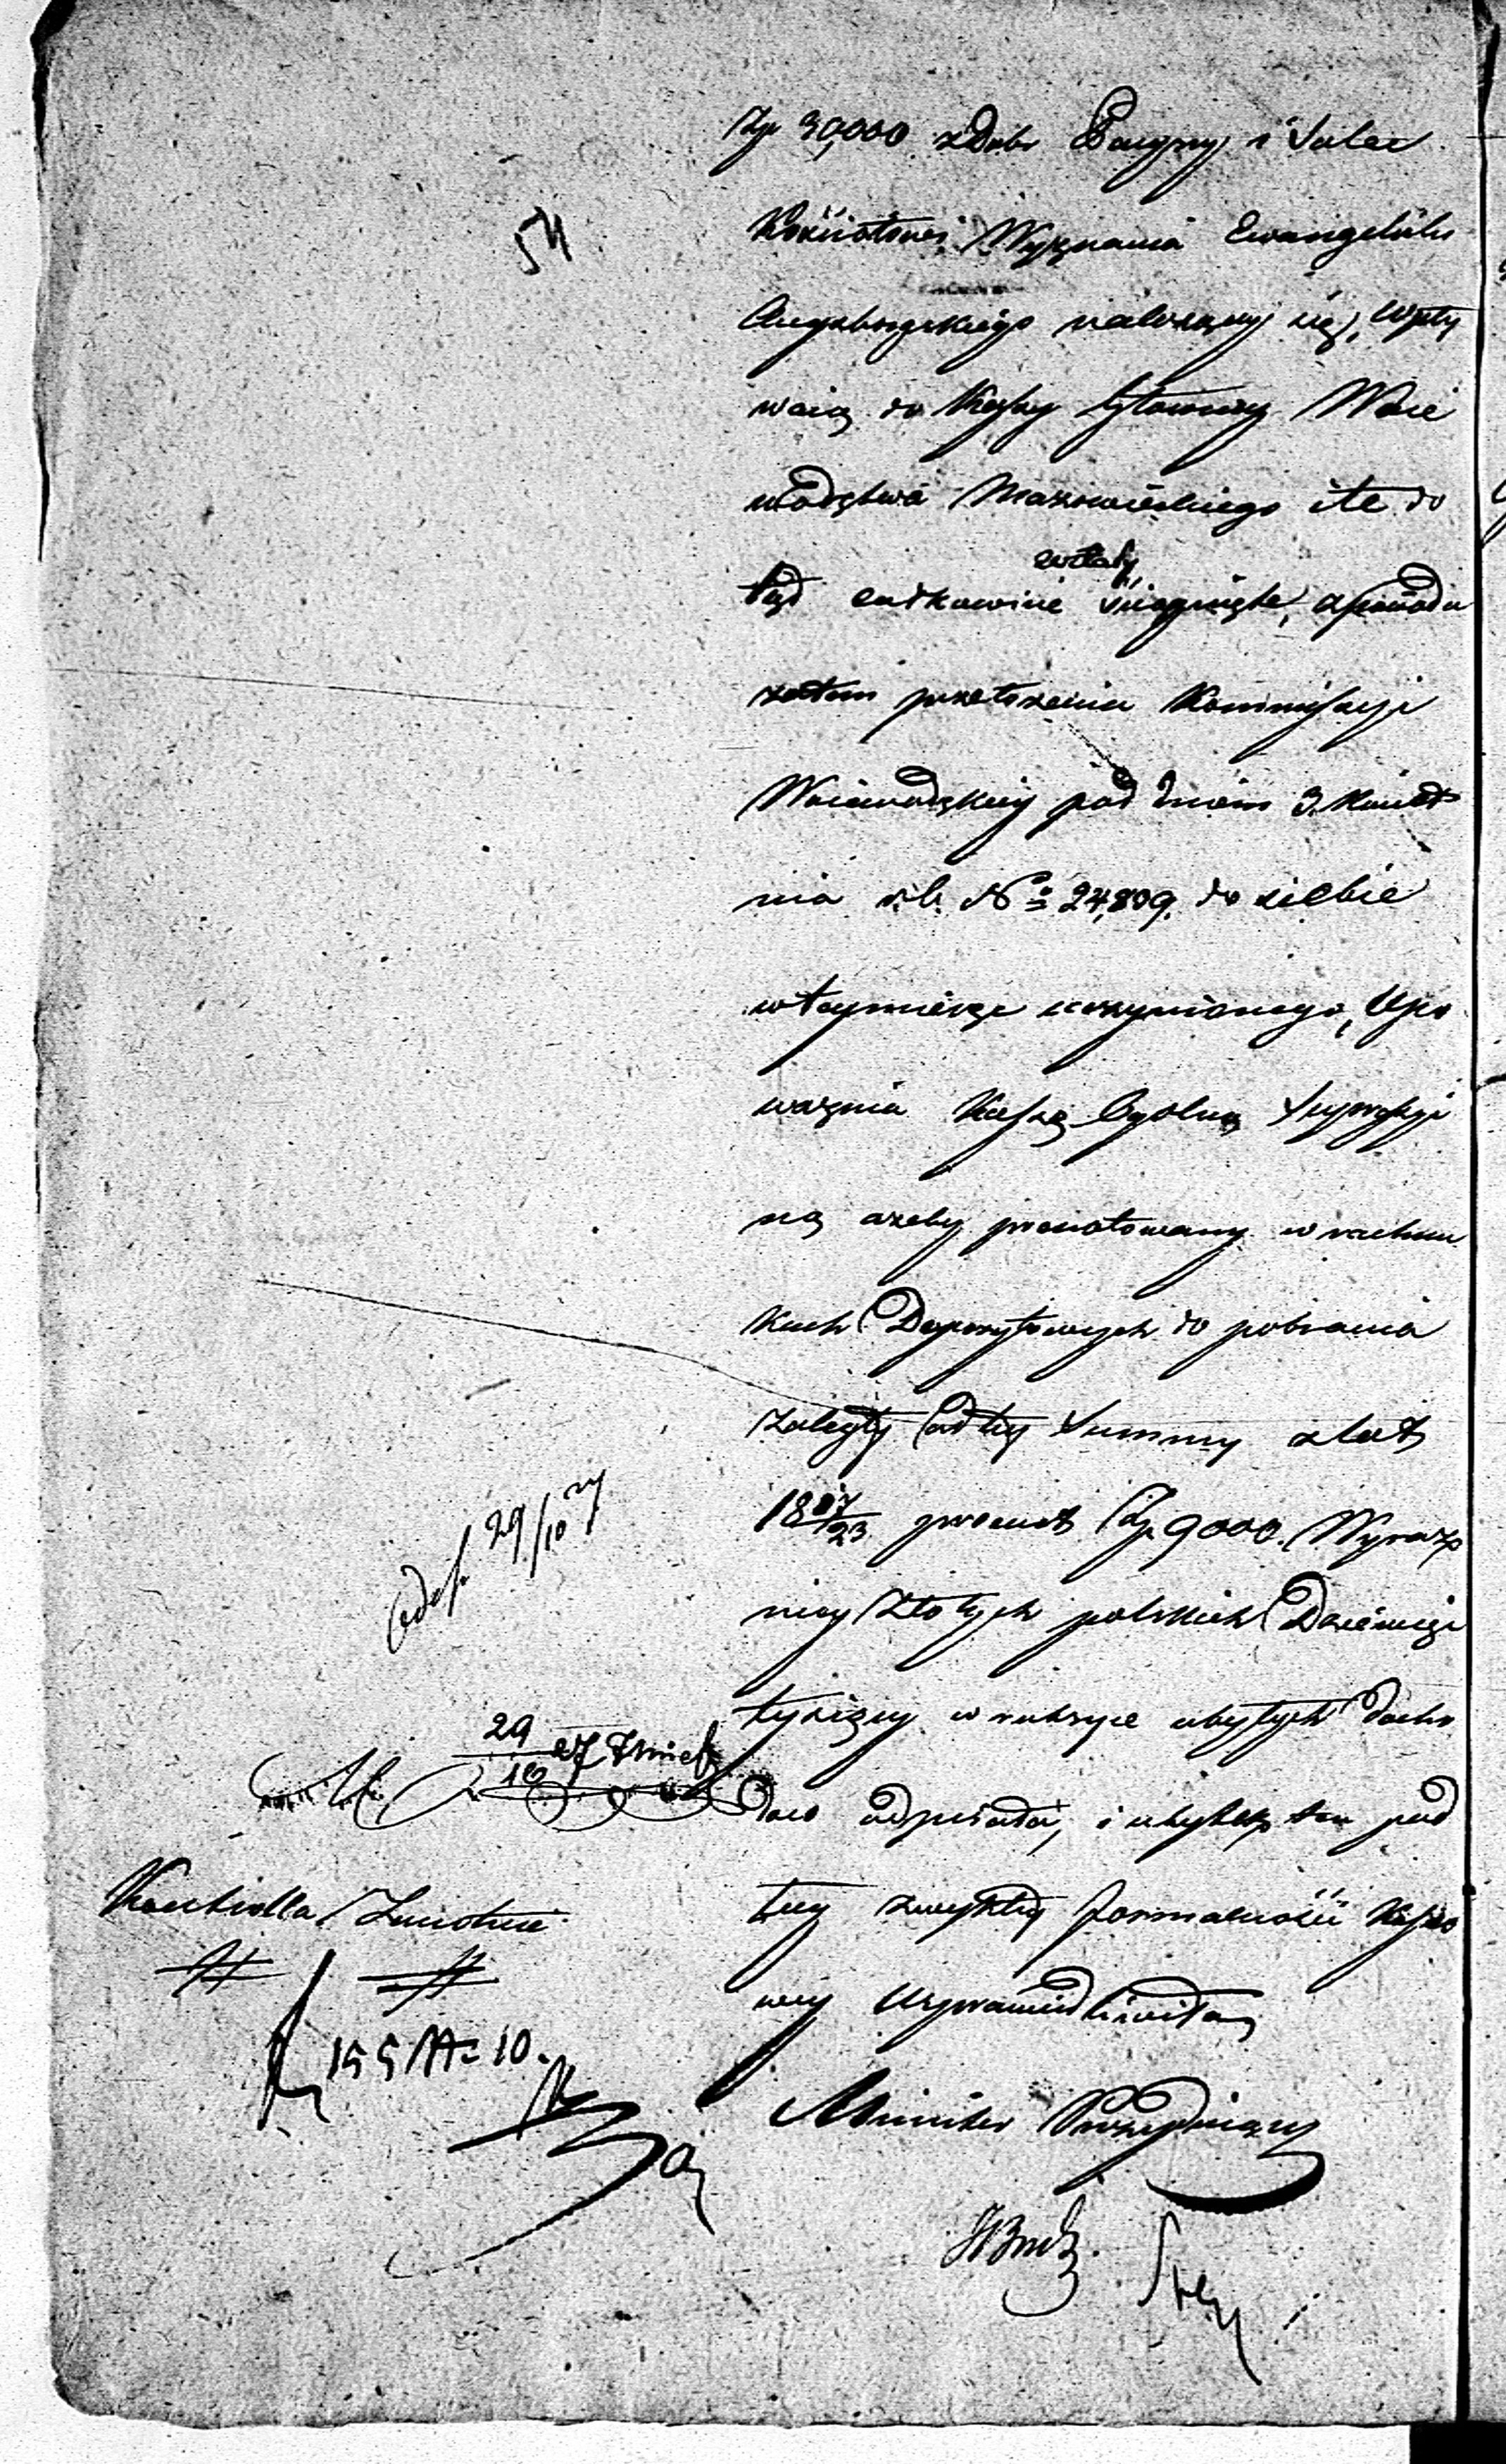 54
Zp 30,000 z Dobr i Solec
Kościołowi Wyznania Ewangelicko
Augsborgskiego należący się, wpły
waią do Kassy Główney Woie
wództwa Mazowieckiego i te do
zostały
tąd całkowicie ściągnięte, z powodu
zatem przełożenia Kommissyi
Woiewódzkiey pod dniem 3. Kwiet
nia r. b. No 24,809. do siebie
w tey mierze uczynionego, Upo
ważnia Kassę Ogólną
ną ażeby prenotowany w rachun
kach Depozytowych do pobrania
zaległy od tey Summy z lat
18 17/23 procent Zp 9000. Wyraź
niey Złotych polskich Dziewięć
tysięcy w rubryce ubyłych docho
dów odpisała, i ubytek ten pod
tug zwykłey formalności Kasso
wey usprawiedliwiła
Minister Prezyduiący
29/10
29/10 27
Kontrolla